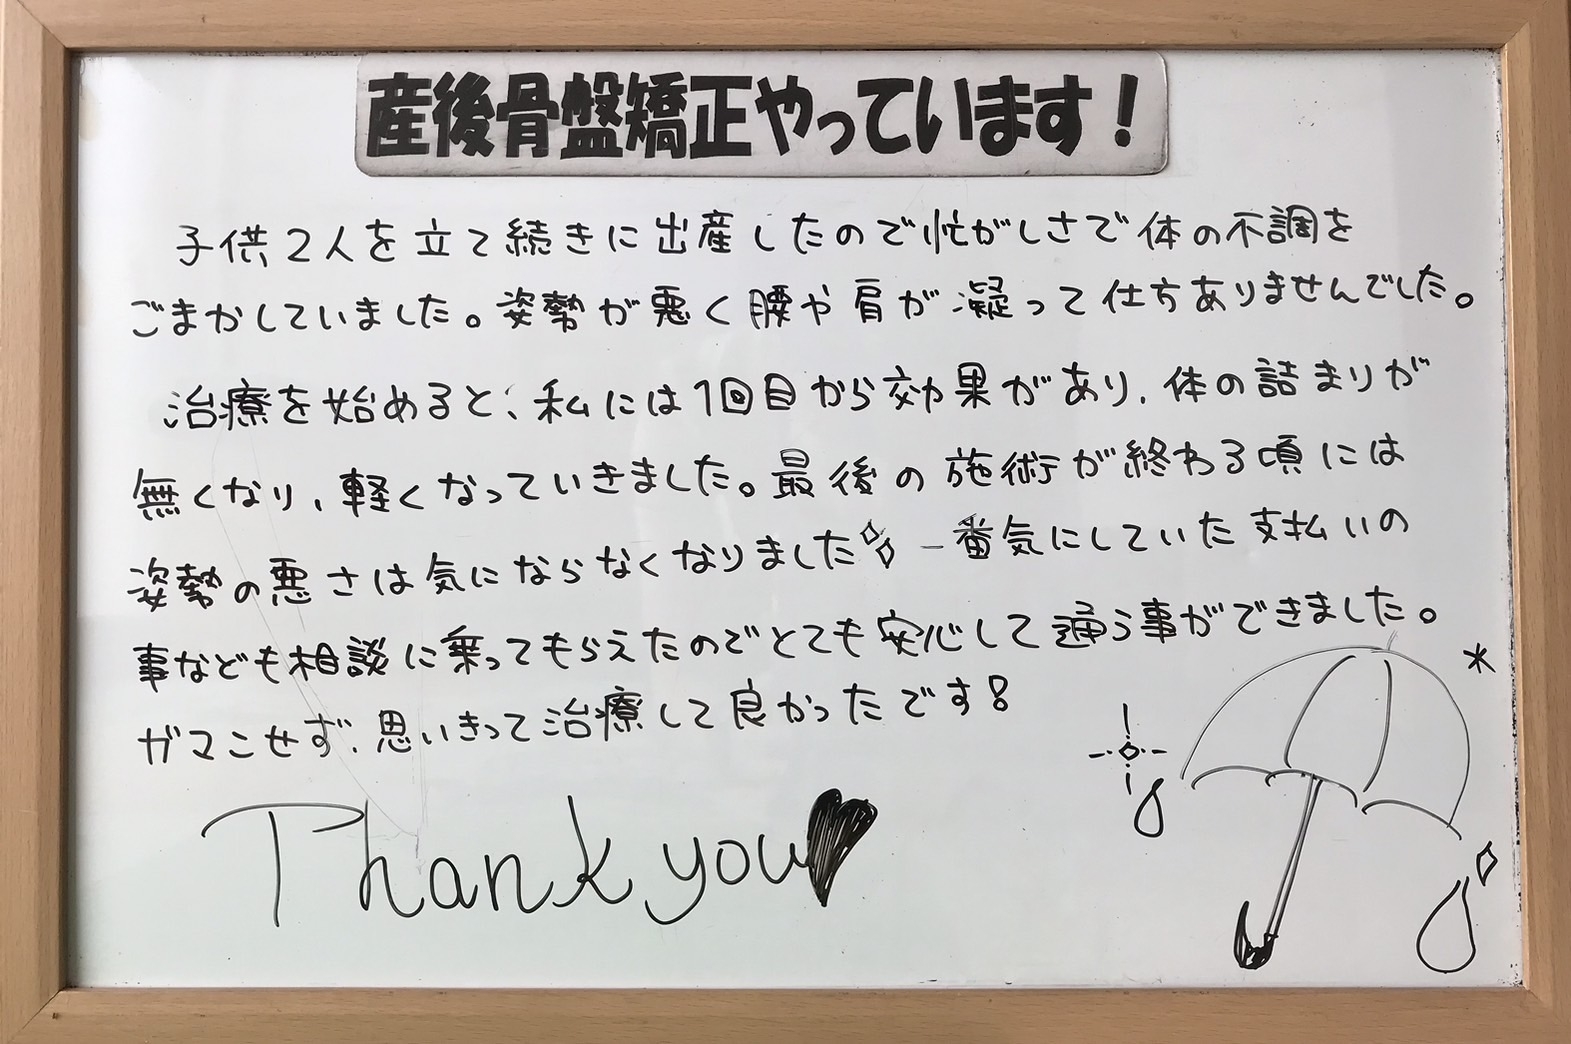 産後骨盤矯正やっています！
子供２人を立て続きに出産したので忙がしさで体の不調を
ごまかしていました。姿勢が悪く腰や肩が凝って仕方ありませんでした。
治療を始めると、私には1回目から効果があり、体の詰まりが
無くなり、軽くなっていきました。最後の施術が終わる頃には
姿勢の悪さは気にならなくなりました 一番気にしていた支払いの
事なども相談に乗ってもらえたのでとても安心して通う事ができました。
ガマこせず、思いきって治療して良かったです！
Thank you